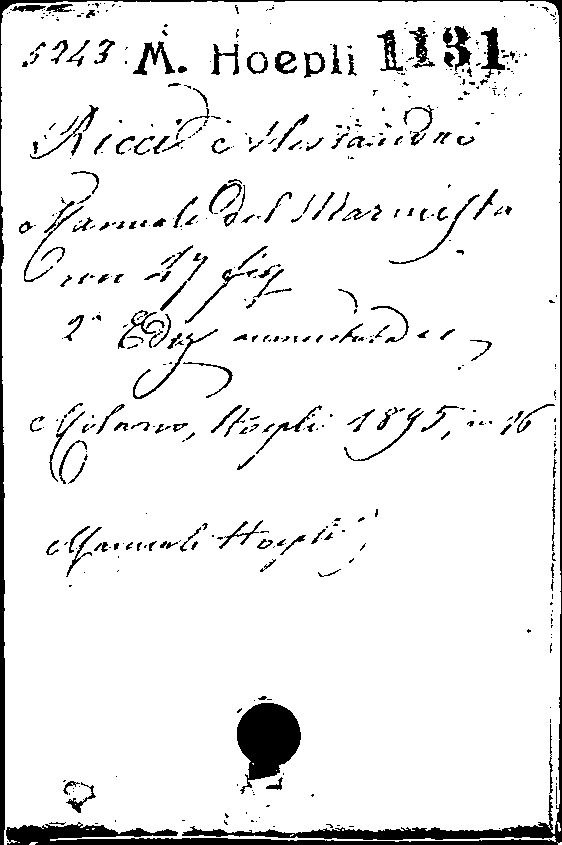 5243 M. Hoepli 1131
Ricci Alessandro
Manuale del Marmista
con 27 fig
2ª Ediz aumentata ecc
Milano, Hoepli 1895, in 16
Manuali Hoepli